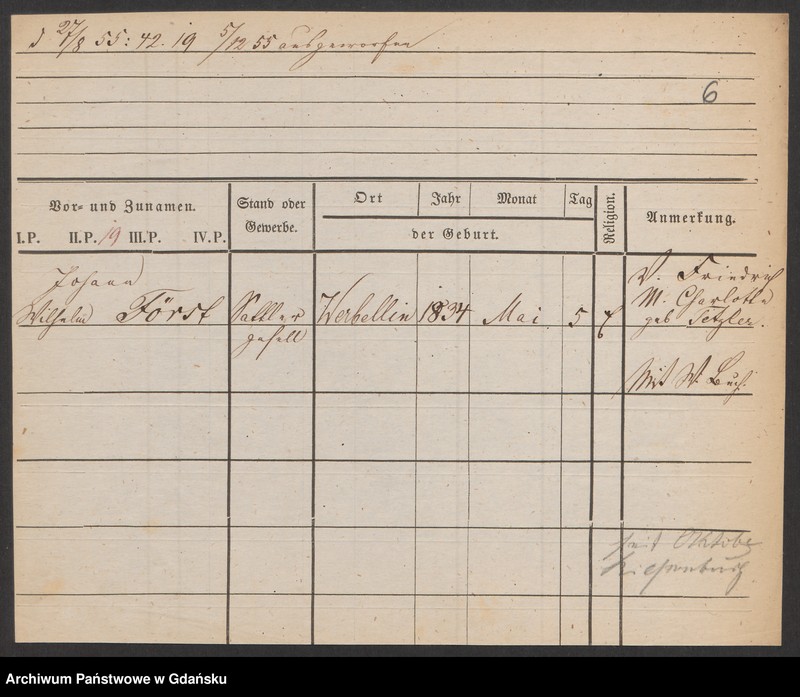 27/8 55: 42. 19 5/12 55 ausgeworfen
6
Vor- und Zunamen.
I.P. II.P. 19 III.P. IV.P.
Stand oder
Gewerbe.
Ort Jahr Monat Tag
der Geburt.
Religion.
Anmerkung.
Johann
Wilhelm Först Sattler Werbellin 1834 Mai 5
gesell
V. Friedrich
M. Charlotte
geb Tetzler.
Mit W. Buch.
seit Oktober
Riesenburg
Archiwum Państwowe w Gdańsku